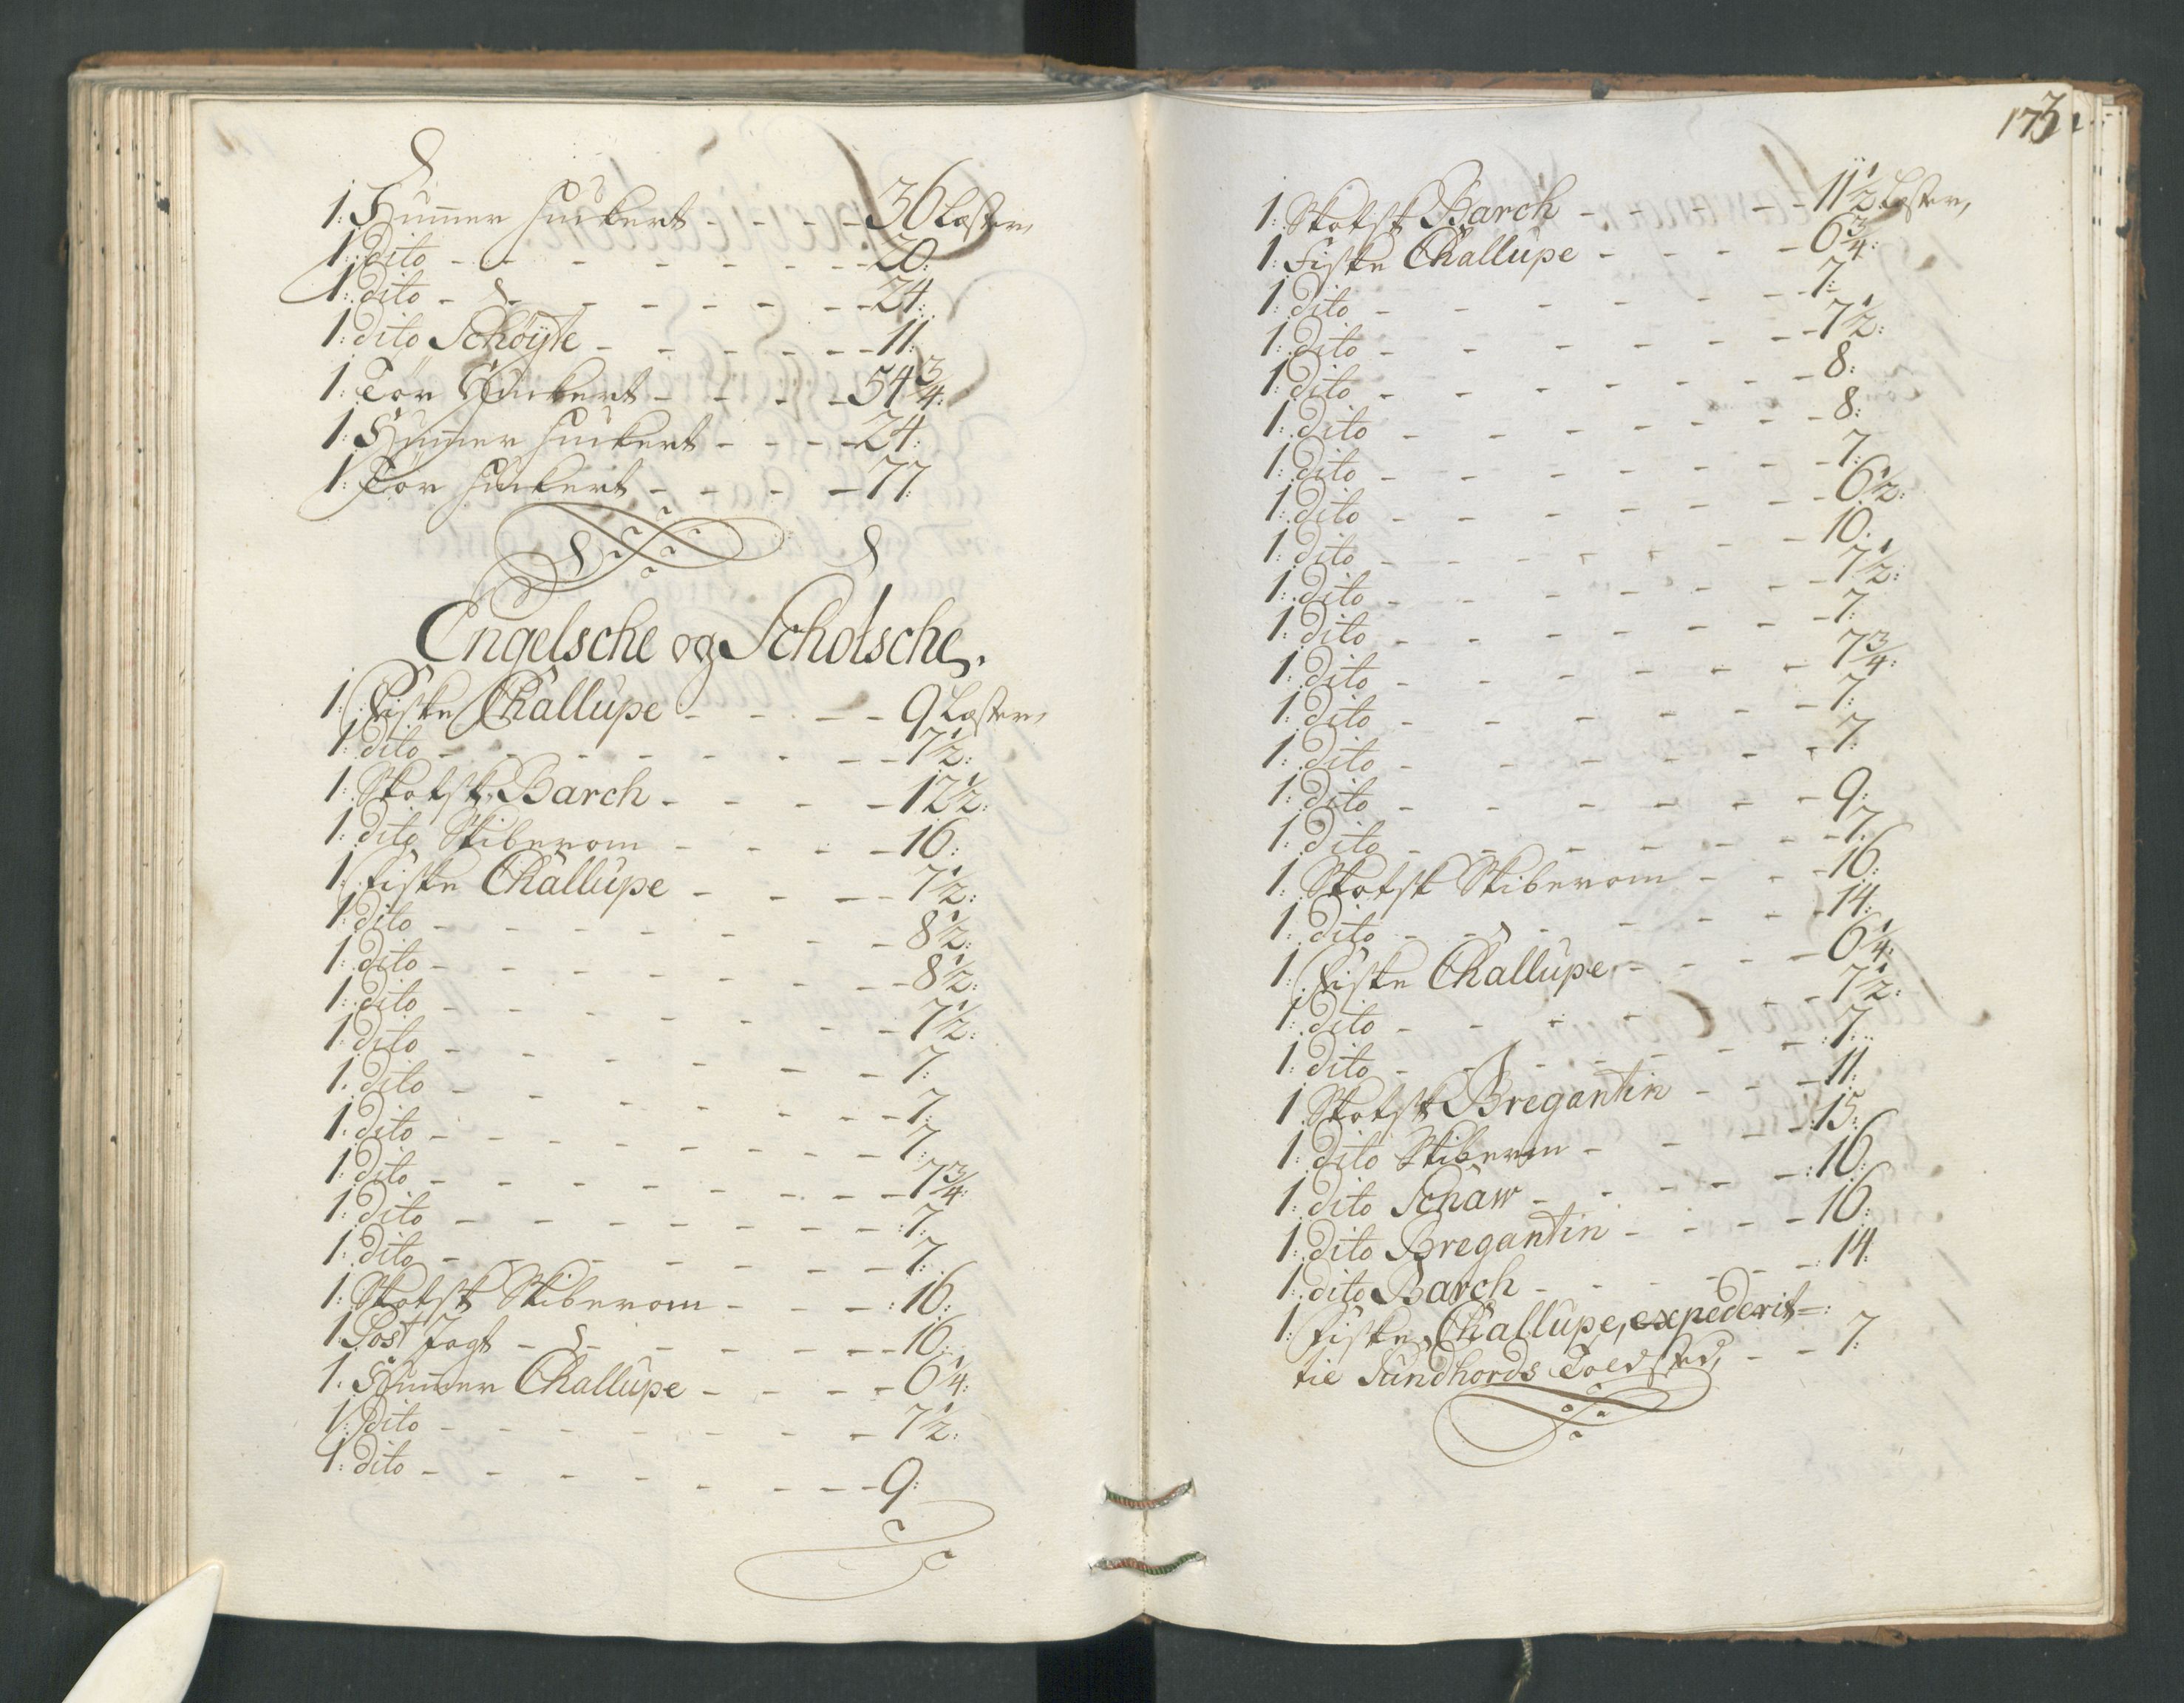 1: Hummer Huckert - - - - 36 Læster,
1: dito - - - - - - - - 20:
1: dito - - - - - - - - 24:
1: dito Schøyte - - - - - - 11:
1: Tör Huckert - - - - 54 3/4:
1: Hummer Huckert - - - - 24:
1: Tör Huckert - - - - 77:
Engelsche og Schotsche,
1: Fiske Challupe - - - - 9 Læster,
1: dito - - - - - - - - 7 1/2:
1: Skotsk Barch - - - - 12 1/2:
1: dito Skiberom - - - - 16:
1: Fiske Challupe - - - - 7 1/2:
1: dito - - - - - - - 8 1/2:
1: dito - - - - - - - 8 1/2:
1: dito - - - - - - - 7 1/2:
1: dito - - - - - - - 7:
1: dito - - - - - - - 7:
1: dito - - - - - - - 7:
1: dito - - - - - - - 7 3/4:
1: dito - - - - - - - 7:
1: dito - - - - - - - 7:
1: Skotsk Skiberom - - - - 16:
1 Post Jagt - - - - - - - 10:
1. Hummer Challupe - - - - 6 1/4:
1: dito - - - - - - - 7 1/2:
1: dito - - - - - - - - 9:
173
1: Skotsk Barch - - - - - - 11 1/2 Læster,
1: Fiske Challupe - - - - 6 3/4:
1: dito - - - - - - - 7:
1: dito - - - - - - - 7 1/2:
1: dito - - - - - - - 8:
1: dito - - - - - - - 8:
1: dito - - - - - - - 7:
1: dito - - - - - - - 6 1/2:
1: dito - - - - - - - 10:
1: dito - - - - - - - 7 1/2:
1: dito - - - - - - - 7:
1: dito - - - - - - - 7 3/4:
1: dito - - - - - - - 7:
1: dito - - - - - - - 7:
1: dito - - - - - - - 9:
1: dito - - - - - - - 7:
1: Skotsk Skiberom - - - 16:
1: dito - - - - - - - 14:
1: Fiske Challupe - - - - 6 1/4:
1: dito - - - - - - 7 1/2:
1: dito - - - - - - - 7:
1 Skotsk Bregantin - - - 11:
1: dito Skiberom - - - - 15:
1: dito Schaw - - - - - 16:
1: dito Bregantin - - - - 16:
1: dito Barch - - - - - - 14:
1: Fiske Challupe, expederit=:
tie Sundhords Toldsted, - - 7: